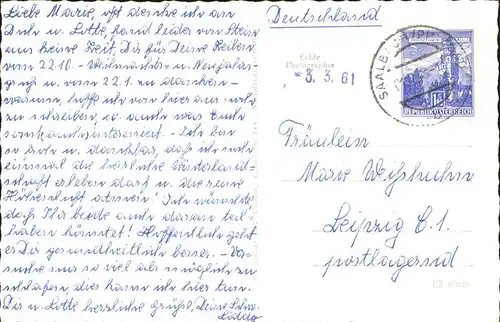 Liebe Marie, oft denke ich an
Dich u. Lotte, fand leider von Stein
aus keine Zeit Dir für Deine lieben
vom 22.10 - Weihnachts- u. Neujahrs-
u. vom 22.1. zu danken -
hoffe ich von hier aus mehr
zu schreiben, u. auch was Euch
interessiert. - Ich bin
so froh u. dankbar, daß ich noch
einmal die herrliche Winterland-
schaft erleben darf u. die reine
Höhenluft atmen! Ich wünschte
daß Ihr beide auch daran teil-
haben könntet! Hoffentlich geht
es Dir gesundheitlich besser. - Ver-
suche nur so viel als möglich zu
schlafen, das kann ich hier tun.
Dir u. Lotte herzliche Grüße, Deine
Deutschland
Echte
Photographie
- 3. 3. 61
SAALB
REPUBLIK ÖSTERREICH
Fräulein
Marie Weißhuhn
Leipzig C. 1.
postlagernd